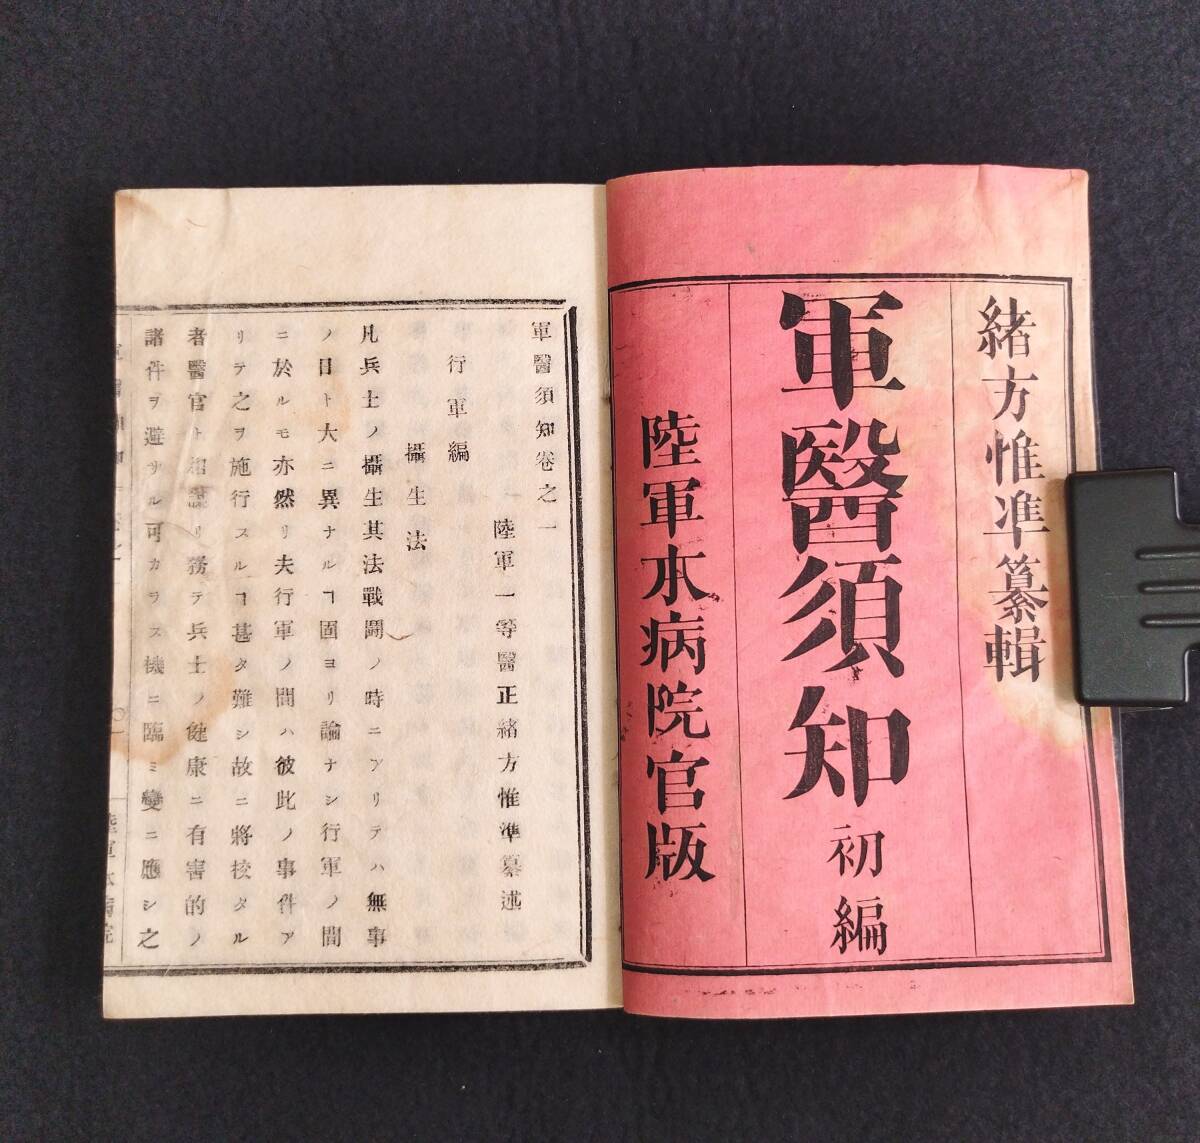 緒方惟準纂輯
軍醫須知初編
陸軍本病院官版
軍醫須知卷之一
陸軍一等醫正緒方惟準纂述
行軍編
攝生法
凡兵士ノ攝生其法戰鬪ノ時ニアリテハ無事
ノ日ト大ニ異ナルヿ固ヨリ論ナシ行軍ノ間
ニ於ルモ亦然リ夫行軍ノ間ハ彼此ノ事件ア
リテ之ヲ施行スルヿ甚タ難シ故ニ將校タル
者醫官ト相議リ務テ兵士ノ健康ニ有害的ノ
諸件ヲ避サル可カラス機ニ臨ミ變ニ應シ之